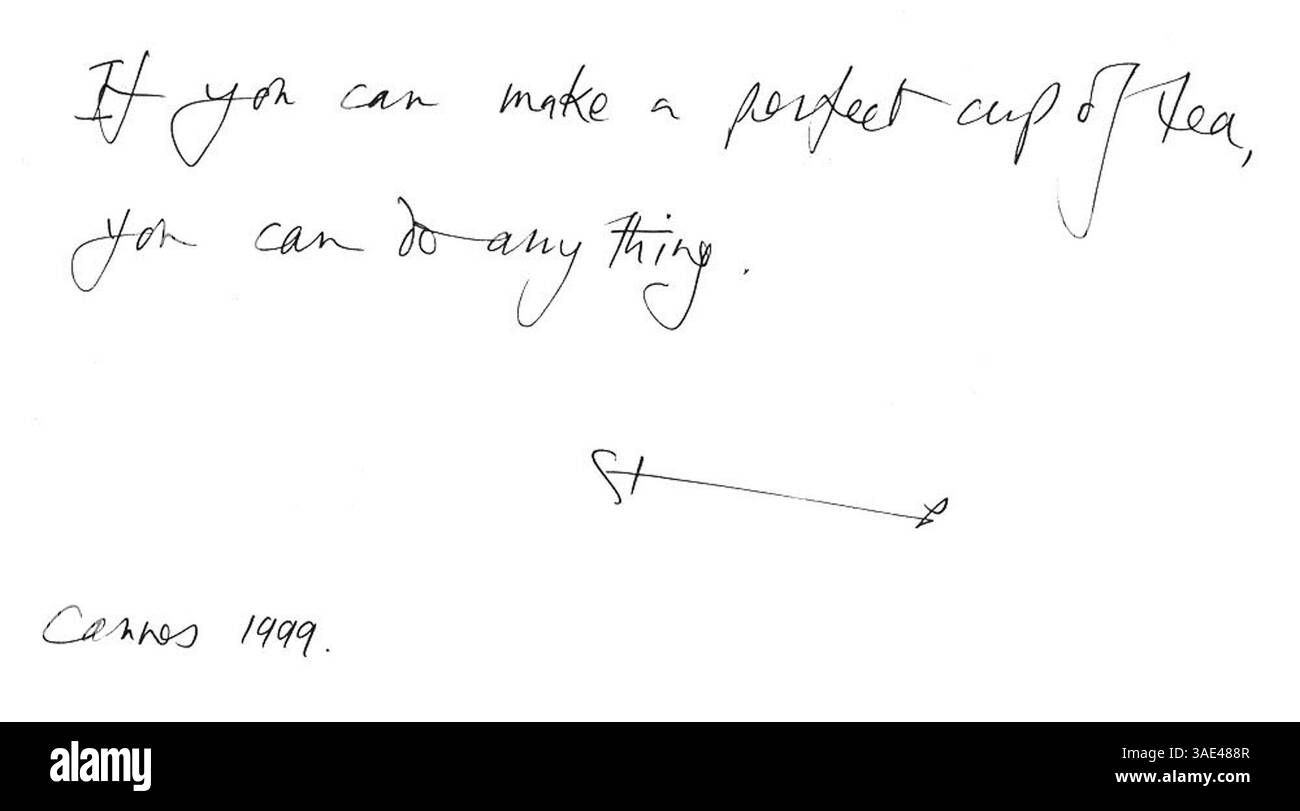 If you can make a perfect cup of tea,
you can do any thing.
Cannes 1999.
alamy
Image ID: 3AE488R
www.alamy.com